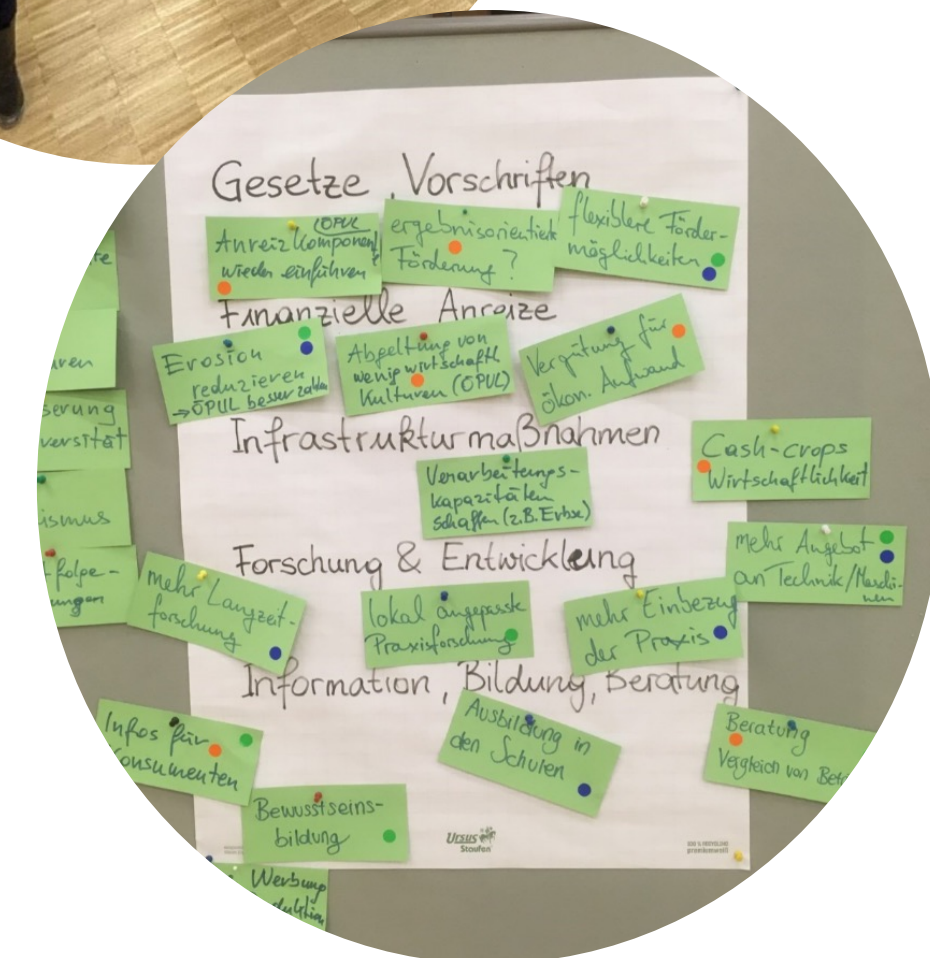 Gesetze, Vorschriften
(ÖPUL
Anreizkomponent
wieder einführen
ergebnisorientierte
Förderung?
flexiblere Förder-
möglichkeiten
Finanzielle Anreize
Erosion
reduzieren
→ ÖPUL besser zahlen
Abgeltung von
wenig wirtschaftl
Kulturen (ÖPUL)
Vergütung für
ökon. Aufwand
Infrastrukturmaßnahmen
Verarbeitungs-
kapazitäten
schaffen (z.B. Erbse)
Cash-crops
Wirtschaftlichkeit
Forschung & Entwicklung
mehr Langzeit-
forschung
lokal angepasste
Praxisforschung
mehr Einbezug
der Praxis
mehr Angebot
an Technik/Maschi-
nen
Information, Bildung, Beratung
Infos für
onsumenten
Bewusstseins-
bildung
Ausbildung in
den Schulen
Beratung
Vergleich von Betr
Werbung
duktion
re
uren
serung
versität
ismus
folge-
ungen
Ursus
Staufen